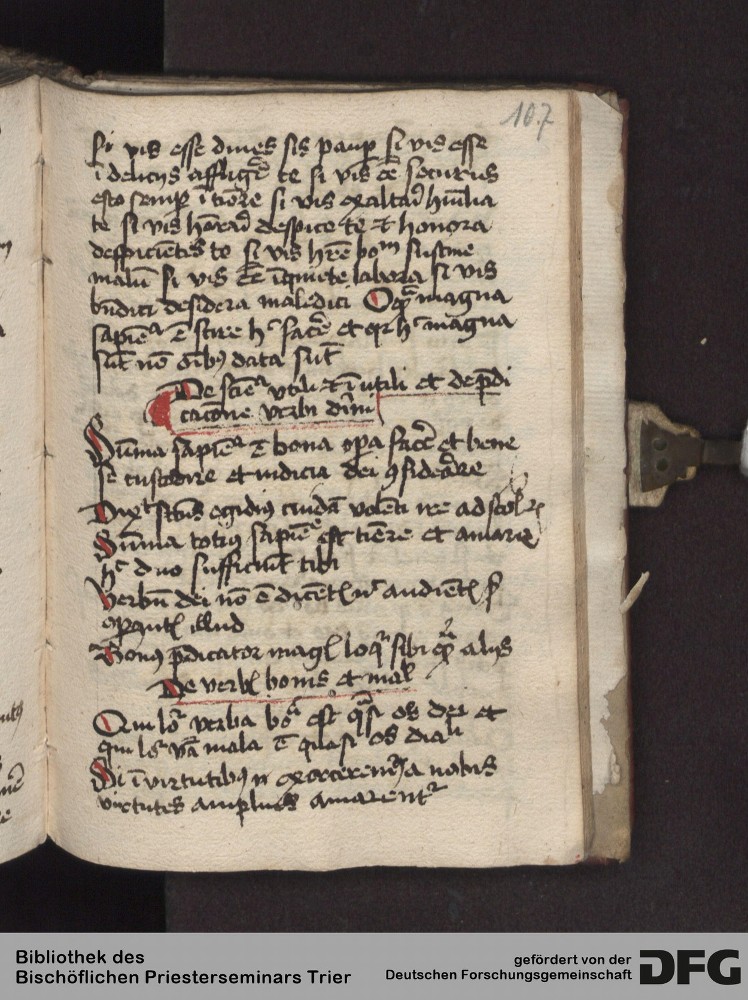 107
si vis esse diues sis paup si vis esse
i delicijs afflige te si vis eē securus
esto semp i tiōre si vis exaltari hūilia
te si vis honorari despice te et honora
despicientes te si vis hrē bom sustine
malū si vis eē i quiete labora si vis
bndici desidera maledici O qm magna
sapiēa ē scire hc facē et qr hc magna
sūt nō oībꝰ data sūt
De sciēa vtili et iutili et de pdi
cacōne verbi dīni
Sūma sapiēa ē bona opa facē et bene
se custodire et iudicia dei ꝯsiderare
Dixt egidiꝰ cuidā volēti ire ad scol
Sūma totius sapiēe est tiēre et amare
hc duo sufficiūt tibi
Verbū dei nō ē dicent nc audient s
opant illud
Bonꝰ pdicator mag loqr sibi qm alijs
De verb bonis et mal
Qui lor verba bo est qsi os dei et
qui lor va mala ē quasi os diali
Si i virtutibꝰ n exerceremr a nobis
virtutes amplius amarentr
Bibliothek des
Bischöflichen Priesterseminars Trier
gefördert von der
Deutschen Forschungsgemeinschaft
DFG